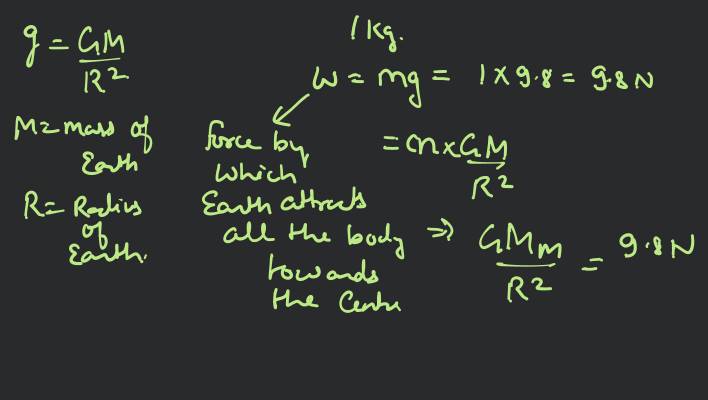 g = GM / R²
M = mass of
Earth
R = Radius
of
Earth.
1 Kg.
W = mg = 1 × 9.8 = 9.8 N
force by
which
Earth attracts
all the body
towards
the Centre
= m × GM / R²
⇒ GMm / R² = 9.8 N